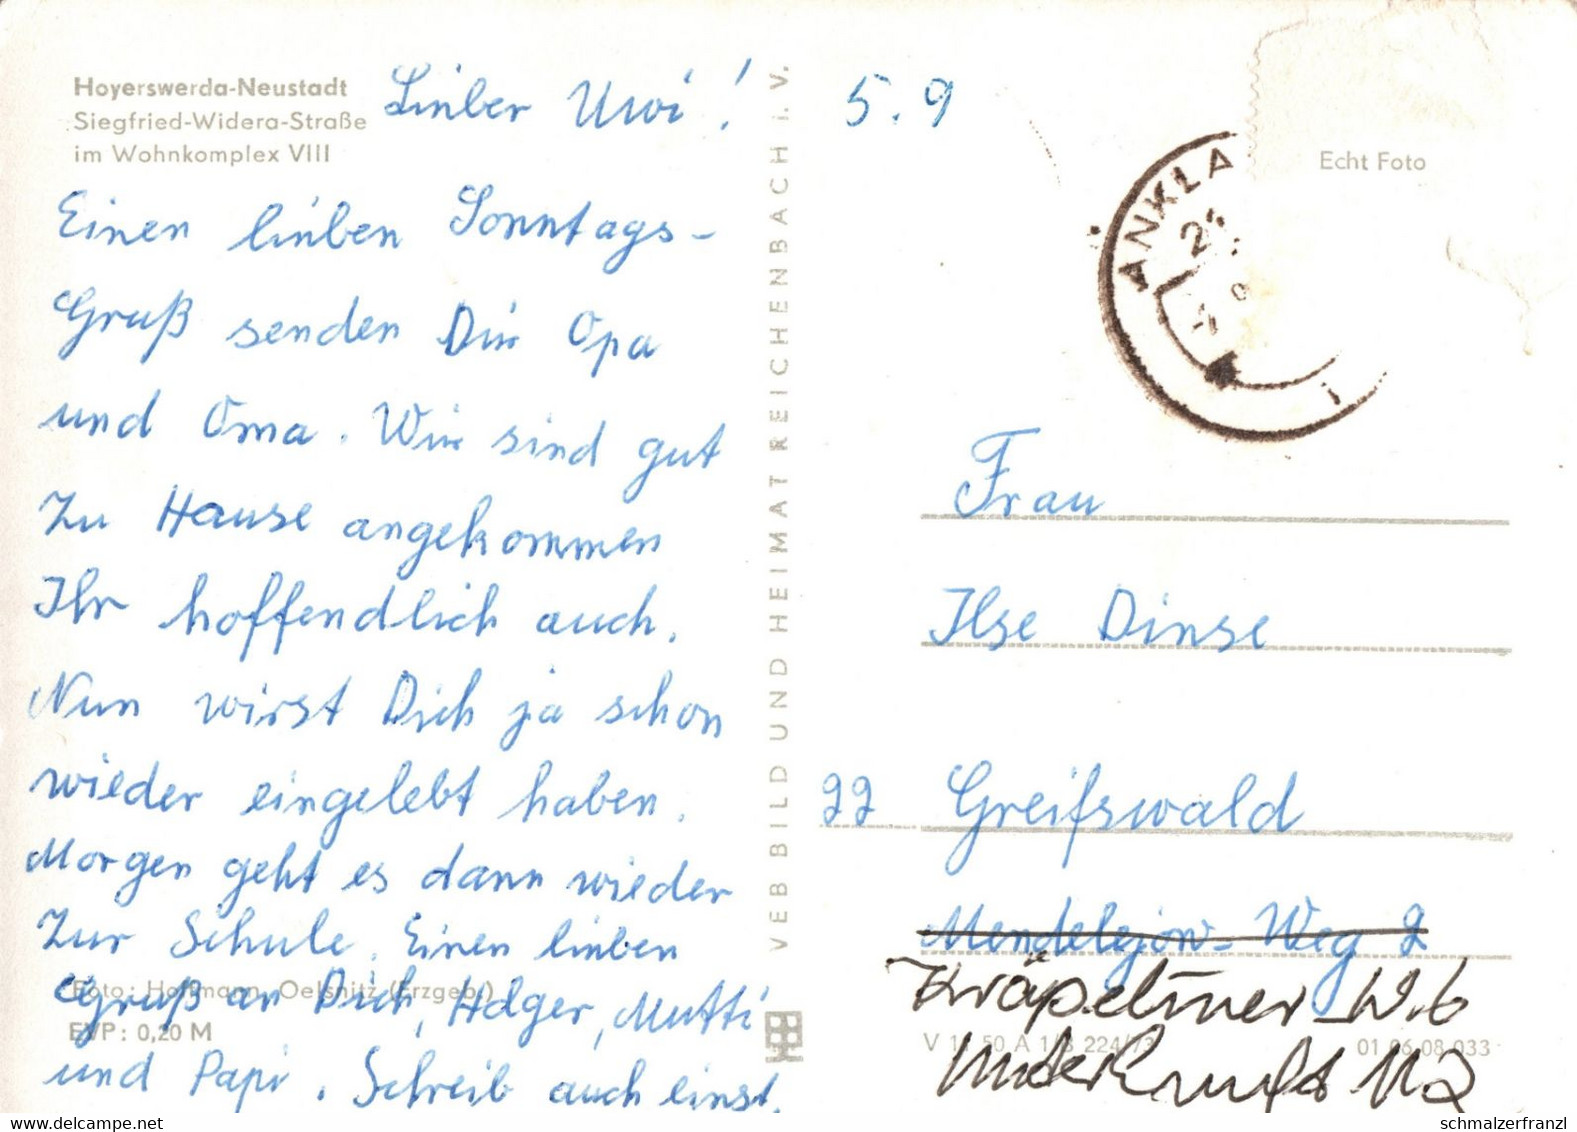 Hoyerswerda-Neustadt
Siegfried-Widera-Straße
im Wohnkomplex VIII
Lieber Uwi! 5.9
Einen lieben Sonntags-
Gruß senden Dir Opa
und Oma. Wir sind gut
Zu Hause angekommen
Ihr hoffendlich auch.
Nun wirst Dich ja schon
wieder eingelebt haben.
Morgen geht es dann wieder
Zur Schule. Einen lieben
Gruß an Dich, Holger, Mutti
und Papi. Schreib auch einst.
Foto: Hoffmann, Oelsnitz (Erzgeb.)
EVP: 0,20 M
VEB BILD UND HEIMAT REICHENBACH i. V.
Echt Foto
ANKLA
Frau
Ilse Dinse
22 Greifswald
Mendelejow-Weg 2
Kräpeliner W. 6
Unterkunft
V 11 50 A 1/B 224/73
01 06 08 033
© www.delcampe.net
schmalzerfranzl